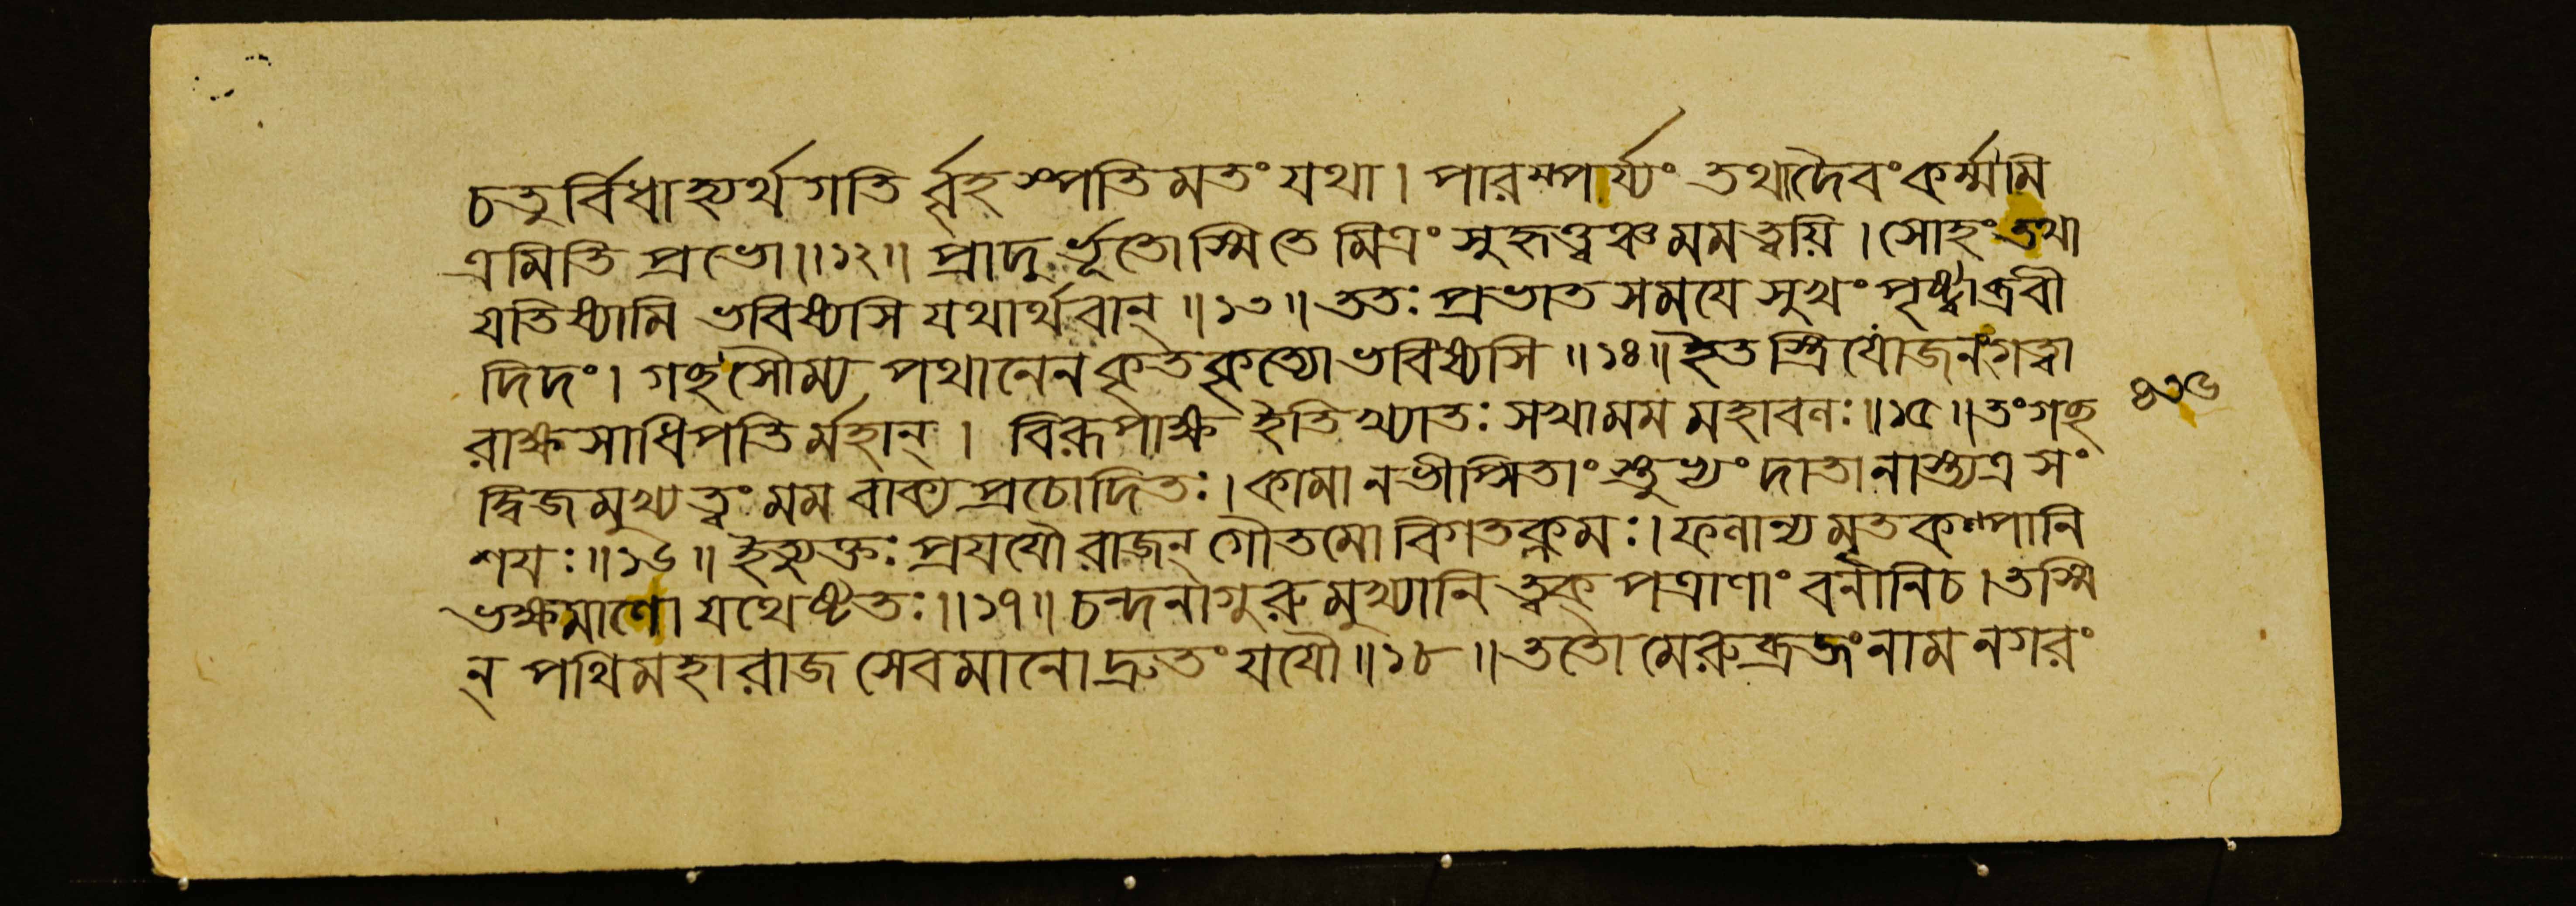 চতুর্বিধাহ্যর্থগতি র্বৃহস্পতিমতং যথা। পারম্পর্য্যং তথাদৈবংকর্ম্মমি
ত্রমিতি প্রভো॥১২॥ প্রাদুর্ভূতোস্মিতে মিত্রং সুহৃত্ত্বঞ্চমমত্বয়ি। সোহংতথা
যতিষ্যামি ভবিষ্যসি যথার্থবান্॥১৩॥ ততঃ প্রভাতসময়ে সুখং পৃষ্ট্বাব্রবী
দিদং। গচ্ছসৌম্য পথানেনকৃতকৃত্যোভবিষ্যসি॥১৪॥ইতস্ত্রিযোজনংগত্বা
রাক্ষসাধিপতির্মহান্। বিরূপাক্ষ ইতিখ্যাতঃ সখামম মহাবলঃ॥১৫॥তংগচ্ছ
দ্বিজমুখ্যত্বং মম বাক্যপ্রচোদিতঃ। কামানভীপ্সিতাংস্তুভ্যং দাতানাস্ত্যত্রসং
শয়ঃ॥১৬॥ইত্যুক্তঃ প্রযযৌরাজন্ গৌতমোবিগতক্লমঃ। ফলান্যমৃতকল্পানি
ভক্ষমাণো যথেষ্টতঃ॥১৭॥চন্দনাগুরুমুখ্যানি ত্বক্পত্রাণাং বনানিচ। তস্মি
ন্ পথিমহারাজ সেবমানোদ্রুতংযযৌ॥১৮॥ততোমেরুব্রজংনামনগরং